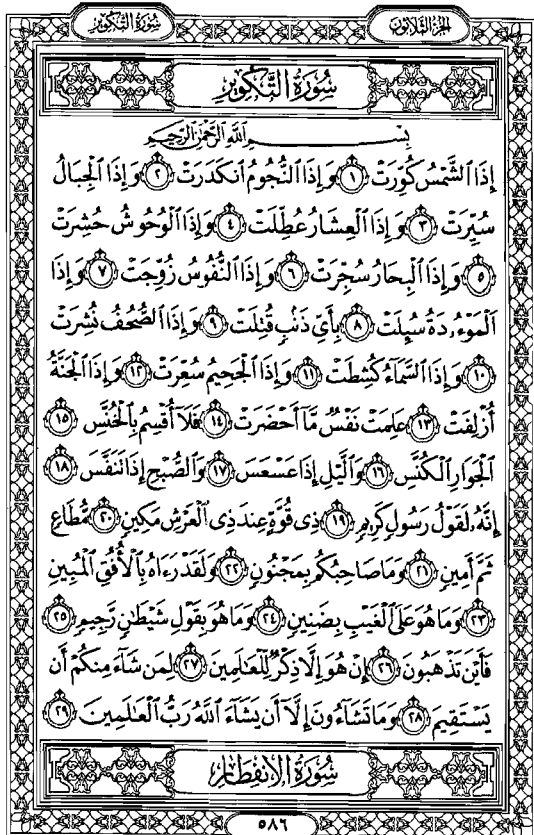 سُورَةُ التَّكْوِيرِ
الجزء الثلاثون
سُورَةُ التَّكْوِيرِ
بِسْمِ ٱللَّهِ ٱلرَّحْمَٰنِ ٱلرَّحِيمِ
إِذَا ٱلشَّمْسُ كُوِّرَتْ ١ وَإِذَا ٱلنُّجُومُ ٱنكَدَرَتْ ٢ وَإِذَا ٱلْجِبَالُ
سُيِّرَتْ ٣ وَإِذَا ٱلْعِشَارُ عُطِّلَتْ ٤ وَإِذَا ٱلْوُحُوشُ حُشِرَتْ
٥ وَإِذَا ٱلْبِحَارُ سُجِّرَتْ ٦ وَإِذَا ٱلنُّفُوسُ زُوِّجَتْ ٧ وَإِذَا
ٱلْمَوْءُۥدَةُ سُئِلَتْ ٨ بِأَىِّ ذَنۢبٍ قُتِلَتْ ٩ وَإِذَا ٱلصُّحُفُ نُشِرَتْ
١٠ وَإِذَا ٱلسَّمَآءُ كُشِطَتْ ١١ وَإِذَا ٱلْجَحِيمُ سُعِّرَتْ ١٢ وَإِذَا ٱلْجَنَّةُ
أُزْلِفَتْ ١٣ عَلِمَتْ نَفْسٌ مَّآ أَحْضَرَتْ ١٤ فَلَآ أُقْسِمُ بِٱلْخُنَّسِ ١٥
ٱلْجَوَارِ ٱلْكُنَّسِ ١٦ وَٱلَّيْلِ إِذَا عَسْعَسَ ١٧ وَٱلصُّبْحِ إِذَا تَنَفَّسَ ١٨
إِنَّهُۥ لَقَوْلُ رَسُولٍ كَرِيمٍ ١٩ ذِى قُوَّةٍ عِندَ ذِى ٱلْعَرْشِ مَكِينٍ ٢٠ مُّطَاعٍ
ثَمَّ أَمِينٍ ٢١ وَمَا صَاحِبُكُم بِمَجْنُونٍ ٢٢ وَلَقَدْ رَءَاهُ بِٱلْأُفُقِ ٱلْمُبِينِ
٢٣ وَمَا هُوَ عَلَى ٱلْغَيْبِ بِضَنِينٍ ٢٤ وَمَا هُوَ بِقَوْلِ شَيْطَٰنٍ رَّجِيمٍ ٢٥
فَأَيْنَ تَذْهَبُونَ ٢٦ إِنْ هُوَ إِلَّا ذِكْرٌ لِّلْعَٰلَمِينَ ٢٧ لِمَن شَآءَ مِنكُمْ أَن
يَسْتَقِيمَ ٢٨ وَمَا تَشَآءُونَ إِلَّآ أَن يَشَآءَ ٱللَّهُ رَبُّ ٱلْعَٰلَمِينَ ٢٩
سُورَةُ الِانْفِطَارِ
٥٨٦